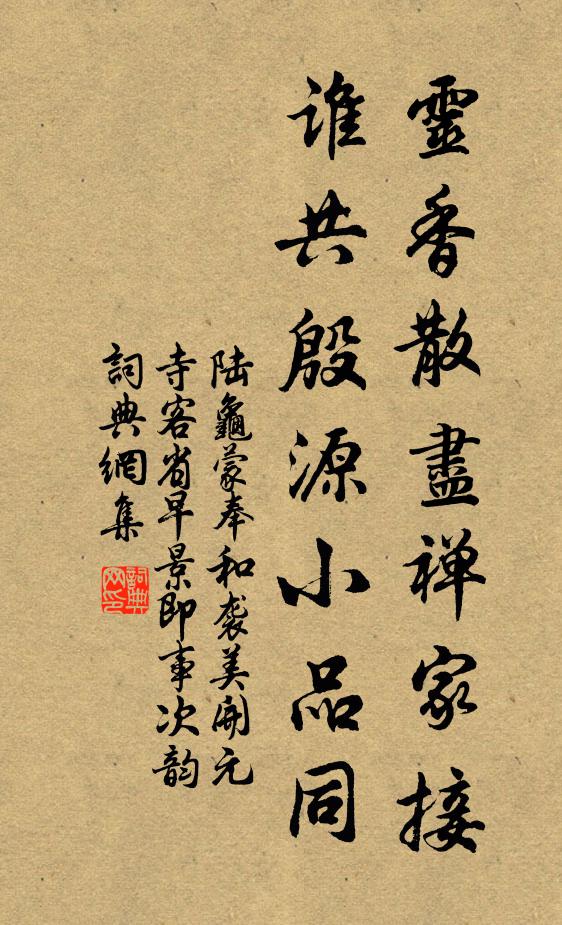 靈香散盡禪家接
誰共殷源小品同
陆龜蒙奉和袭美開元
寺客省早景即事次韵
詞典網集
詞典网印